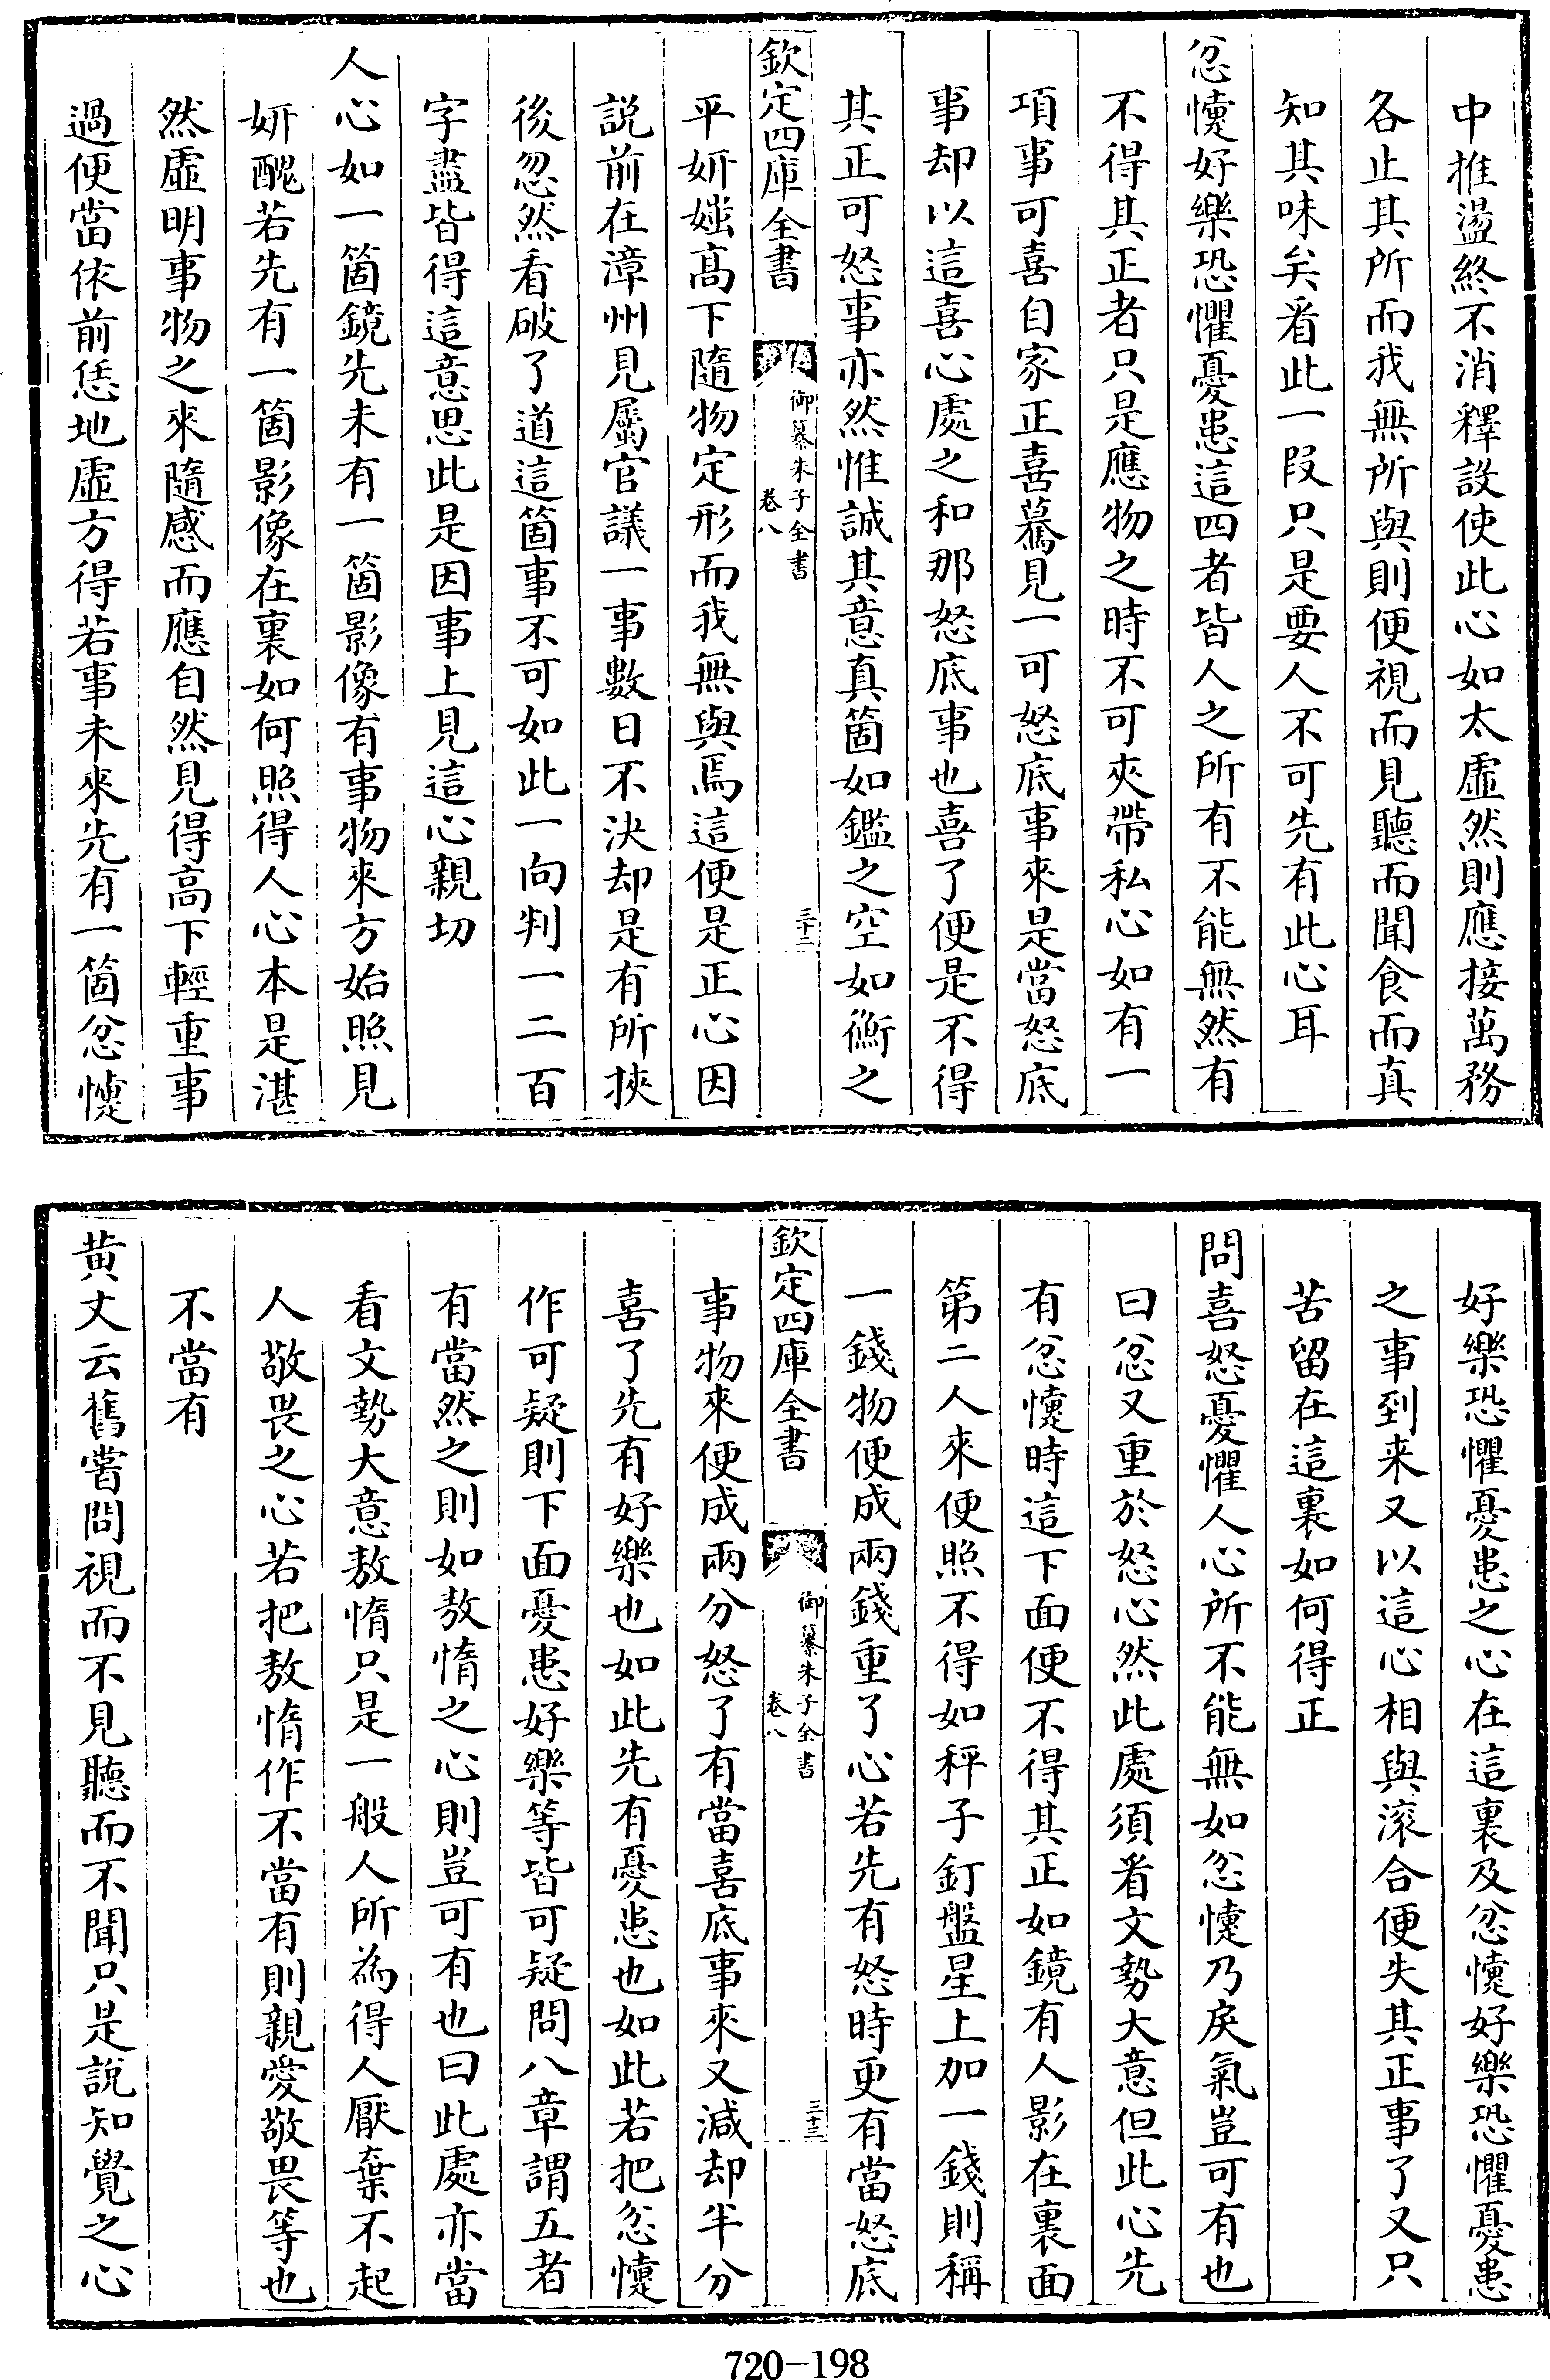 中推盪終不消釋設使此心如太虛然則應接萬務
各止其所而我無所與則便視而見聽而聞食而真
知其味矣看此一段只是要人不可先有此心耳
忿懥好樂恐懼憂患這四者皆人之所有不能無然有
不得其正者只是應物之時不可夾帶私心如有一
項事可喜自家正喜驀見一可怒底事來是當怒底
事却以這喜心處之和那怒底事也喜了便是不得
其正可怒事亦然惟誠其意真箇如鑑之空如衡之
欽定四庫全書
御纂朱子全書
卷八
三十二
平妍媸高下隨物定形而我無與焉這便是正心因
説前在漳州見屬官議一事數日不決却是有所挾
後忽然看破了道這箇事不可如此一向判一二百
字盡皆得這意思此是因事上見這心親切
人心如一箇鏡先未有一箇影像有事物來方始照見
妍醜若先有一箇影像在裏如何照得人心本是湛
然虛明事物之來隨感而應自然見得高下輕重事
過便當依前恁地虛方得若事未來先有一箇忿懥
好樂恐懼憂患之心在這裏及忿懥好樂恐懼憂患
之事到来又以這心相與滚合便失其正事了又只
苦留在這裏如何得正
問喜怒憂懼人心所不能無如忿懥乃戾氣豈可有也
曰忿又重於怒心然此處須看文勢大意但此心先
有忿懥時這下面便不得其正如鏡有人影在裏面
第二人來便照不得如秤子釘盤星上加一錢則稱
一錢物便成兩錢重了心若先有怒時更有當怒底
欽定四庫全書
御纂朱子全書
卷八
三十三
事物來便成兩分怒了有當喜底事來又減却半分
喜了先有好樂也如此先有憂患也如此若把忿懥
作可疑則下面憂患好樂等皆可疑問八章謂五者
有當然之則如敖惰之心則豈可有也曰此處亦當
看文勢大意敖惰只是一般人所為得人厭棄不起
人敬畏之心若把敖惰作不當有則親愛敬畏等也
不當有
黄丈云舊嘗問視而不見聽而不聞只是說知覺之心
720-198